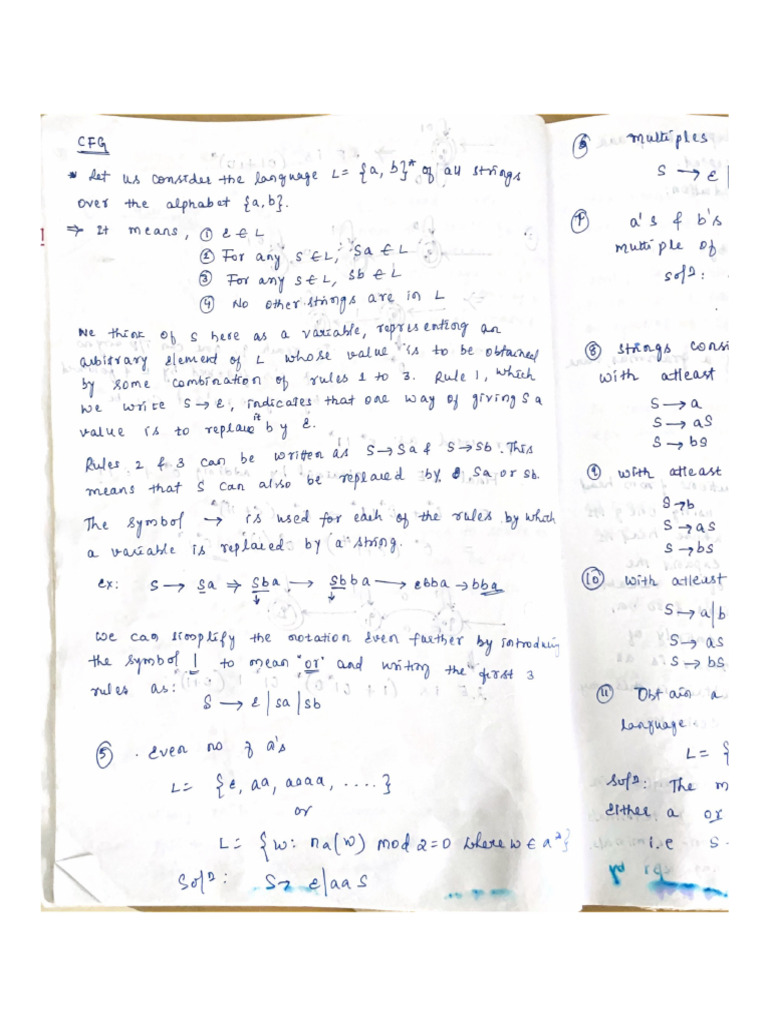 CFG
* Let us consider the language L = {a, b}* of all strings
over the alphabet {a,b}.
⇒ It means, ① ε ∈ L
② For any S ∈ L, Sa ∈ L
③ For any S ∈ L, Sb ∈ L
④ No other strings are in L
We think of S here as a variable, representing an
arbitrary element of L whose value is to be obtained
by some combination of rules 1 to 3. Rule 1, which
we write S → ε, indicates that one way of giving S a
value is to replace it by ε.
Rules 2 & 3 can be written as S → Sa & S → Sb. This
means that S can also be replaced by Sa or Sb.
The symbol → is used for each of the rules by which
a variable is replaced by a string.
ex: S → Sa ⇒ Sba → Sbba → εbba → bba
We can simplify the notation even further by introducing
the symbol | to mean "or" and writing the first 3
rules as:
S → ε | Sa | Sb
⑤ Even no of a's
L = {ε, aa, aaaa, ....}
or
L = {w: na(w) mod 2 = 0 where w ∈ a*}
Solⁿ: S → ε | aa S
⑥ multiples
S → ε |
⑦ a's & b's
multiple of
Solⁿ:
⑧ Strings consi
with atleast
S → a
S → aS
S → bS
⑨ with atleast
S → b
S → aS
S → bS
⑩ with atleast
S → a | b
S → aS
S → bS
⑪ Obtain a
language
L = {
Solⁿ: The m
either a or
i.e S